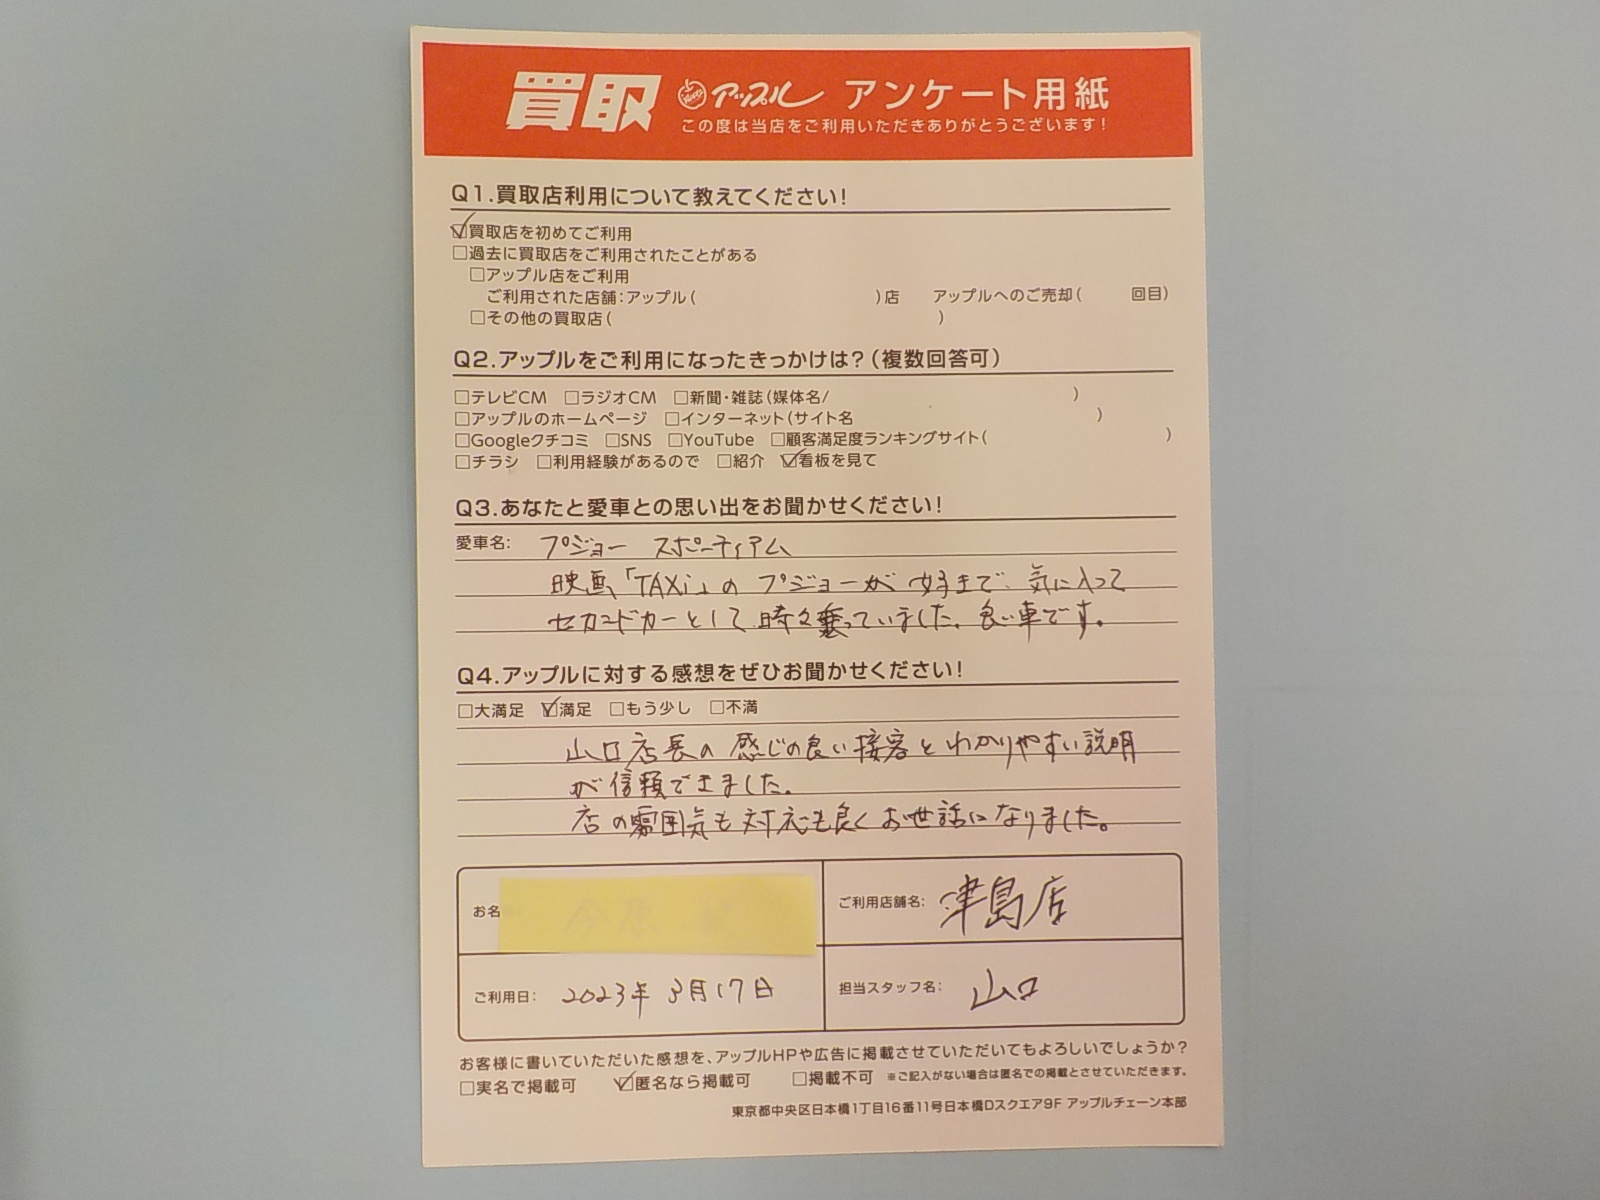 買取 アップル アンケート用紙
この度は当店をご利用いただきありがとうございます!
Q1.買取店利用について教えてください!
☑買取店を初めてご利用
□過去に買取店をご利用されたことがある
□アップル店をご利用
ご利用された店舗:アップル( )店 アップルへのご売却( 回目)
□その他の買取店( )
Q2.アップルをご利用になったきっかけは?(複数回答可)
□テレビCM □ラジオCM □新聞・雑誌(媒体名/ )
□アップルのホームページ □インターネット(サイト名 )
□Googleクチコミ □SNS □YouTube □顧客満足度ランキングサイト( )
□チラシ □利用経験があるので □紹介 ☑看板を見て
Q3.あなたと愛車との思い出をお聞かせください!
愛車名: プジョー スポーティアム
映画「TAXi」のプジョーが好きで、気に入って
セカンドカーとして時々乗っていました。良い車です。
Q4.アップルに対する感想をぜひお聞かせください!
□大満足 ☑満足 □もう少し □不満
山口店長の感じの良い接客とわかりやすい説明
が信頼できました。
店の雰囲気も対応も良くお世話になりました。
お名
ご利用店舗名: 津島店
ご利用日: 2023年3月17日
担当スタッフ名: 山口
お客様に書いていただいた感想を、アップルHPや広告に掲載させていただいてもよろしいでしょうか?
□実名で掲載可 ☑匿名なら掲載可 □掲載不可 ※ご記入がない場合は匿名での掲載とさせていただきます。
東京都中央区日本橋1丁目16番11号日本橋Dスクエア9F アップルチェーン本部